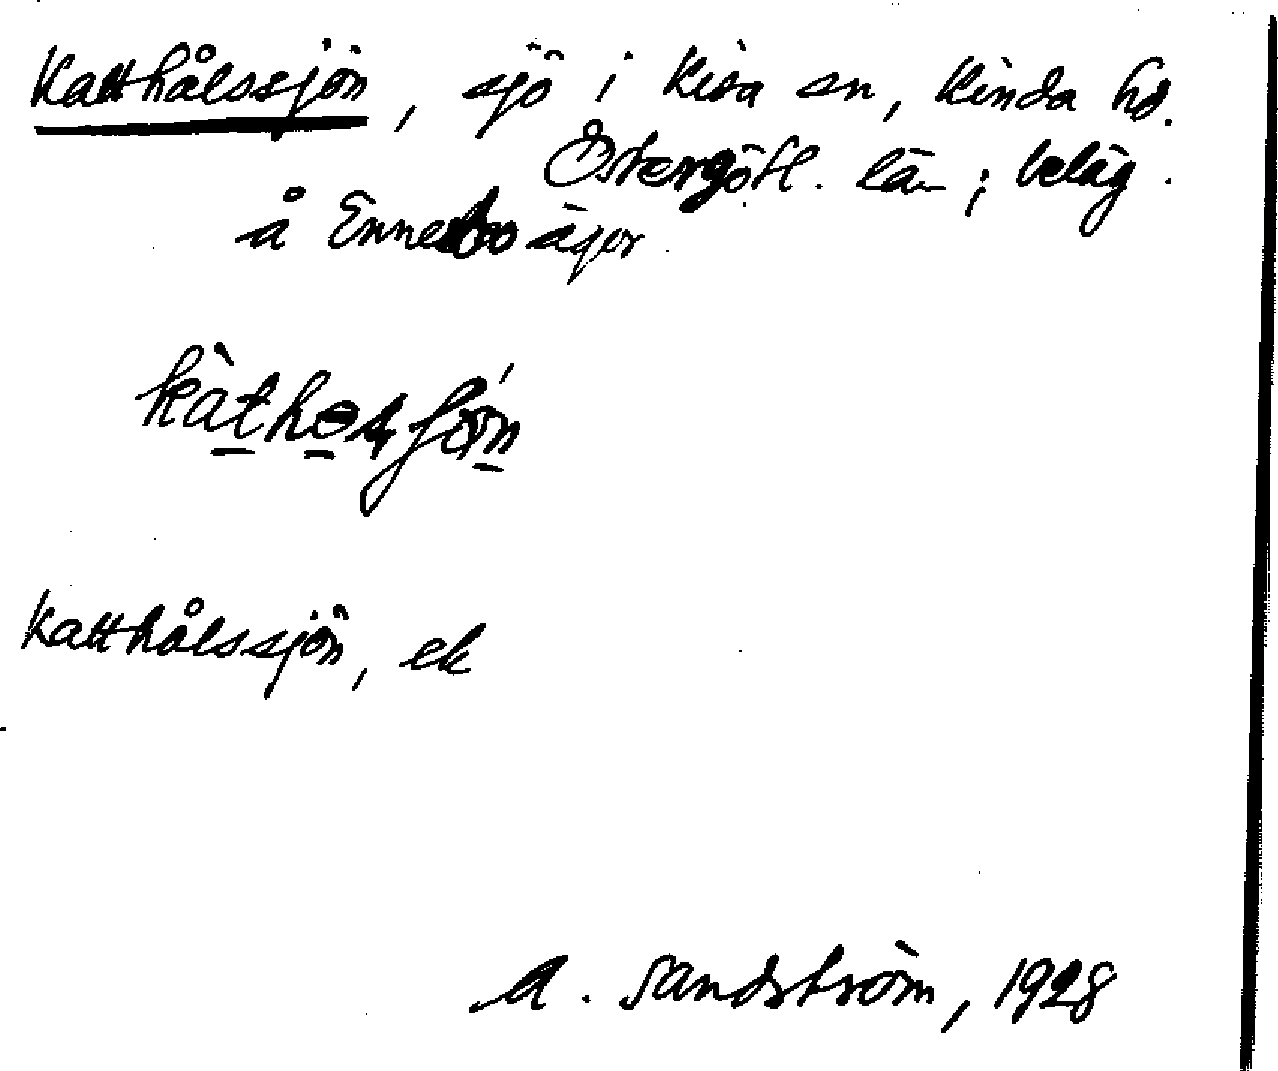 Katthålssjön, sjö i Kisa sn, Kinda hd.
Östergötl. län; beläg.
å Ennebo ägor.
Katthålssjön, ek
A. Sandström, 1928